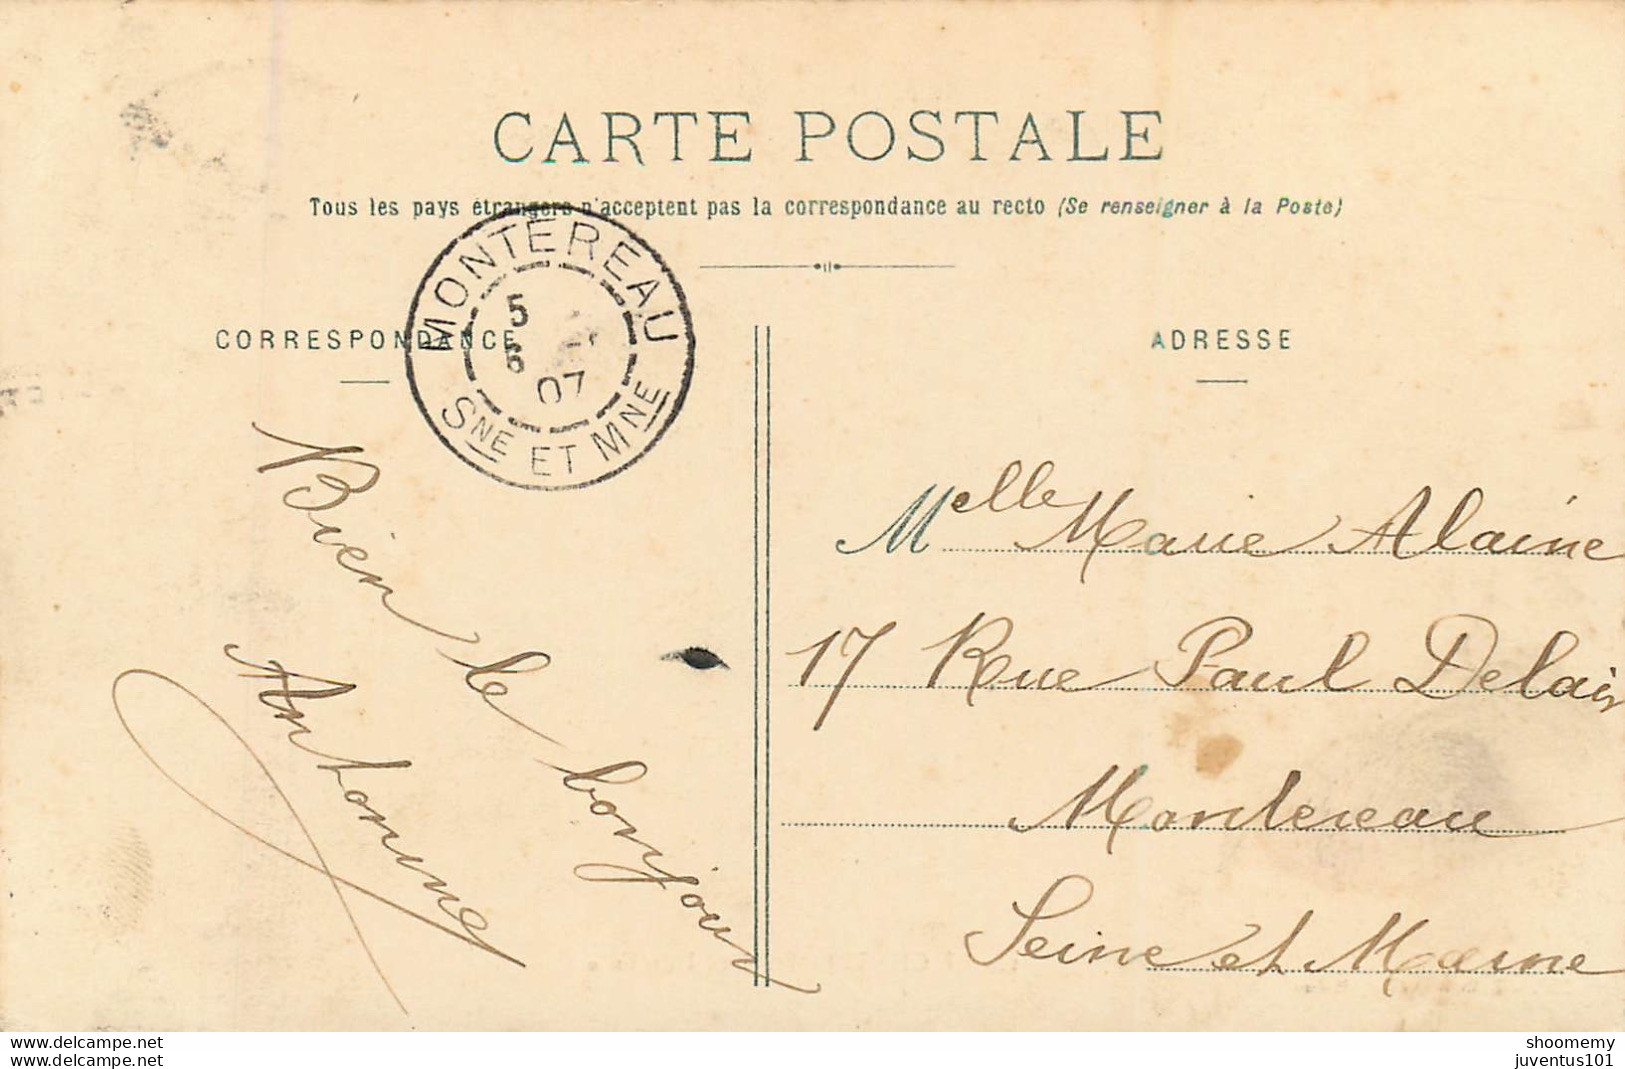 CARTE POSTALE
Tous les pays étrangers n'acceptent pas la correspondance au recto (Se renseigner à la Poste)
MONTEREAU
5
6
07
SNE ET MNE
CORRESPONDANCE
ADRESSE
Bien le bonjour
Antonine
Melle Marie Alaine
17 Rue Paul Delair
Montereau
Seine et Marne
www.delcampe.net
www.delcampe.net
shoomemy
juventus101